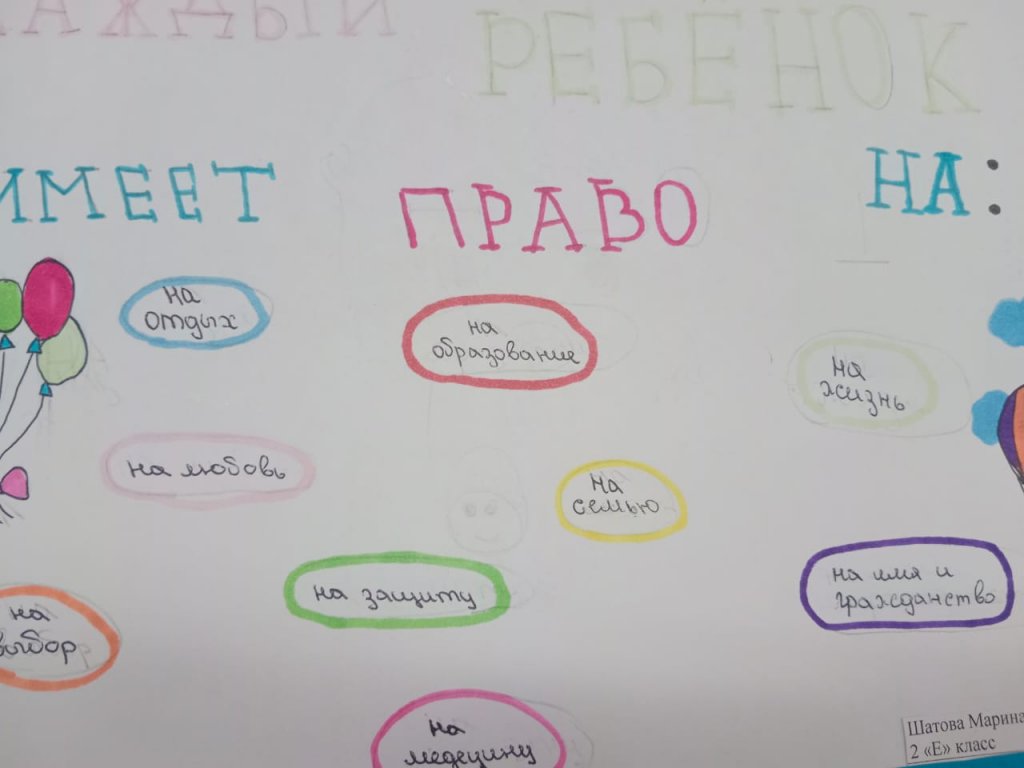 КАЖДЫЙ РЕБЁНОК
ИМЕЕТ ПРАВО НА:
на
отдых
на
образование
на
жизнь
на любовь
на
семью
на защиту
на имя и
гражданство
на
выбор
на
медецину
Шатова Марина
2 «Е» класс